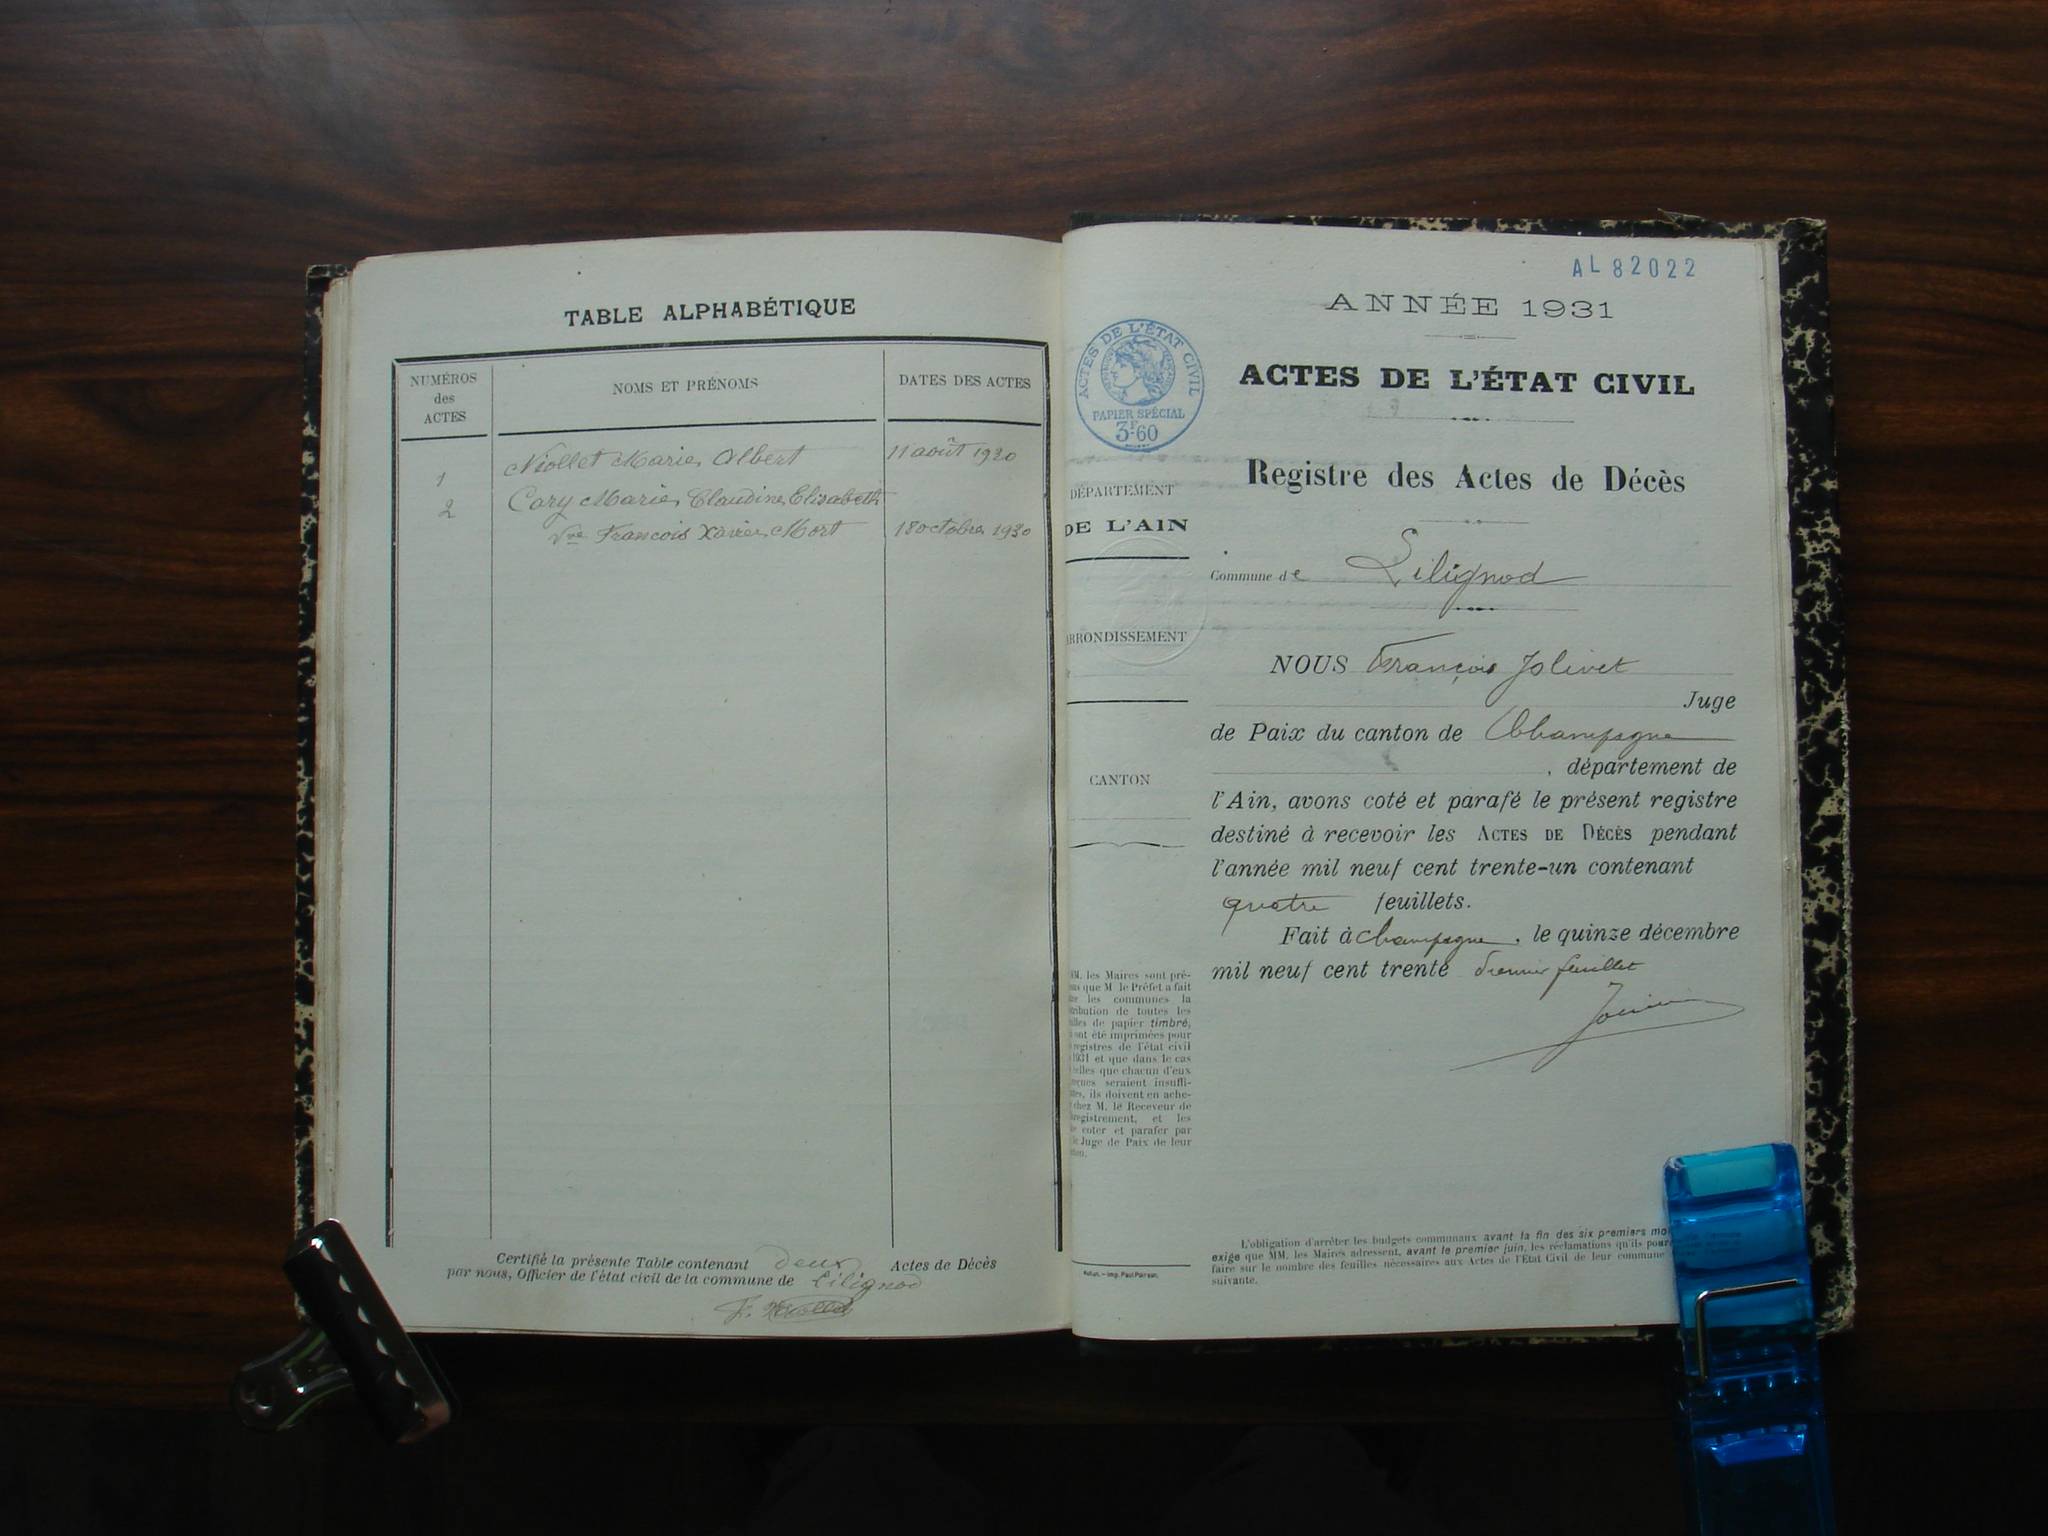 TABLE ALPHABÉTIQUE
NUMÉROS
des
ACTES
NOMS ET PRÉNOMS
DATES DES ACTES
1
Niollet Marie Albert
11 août 1930
2
Cary Marie Claudine Elisabeth
Vve François Xavier Mort
18 octobre 1930
Certifié la présente Table contenant deux Actes de Décès
par nous, Officier de l'état civil de la commune de Lilignod
AL 82022
ANNÉE 1931
ACTES DE L'ÉTAT CIVIL
PAPIER SPÉCIAL
3F60
ACTES DE L'ÉTAT CIVIL
Registre des Actes de Décès
DÉPARTEMENT
DE L'AIN
Commune de Lilignod
ARRONDISSEMENT
NOUS François Jolivet
Juge
de Paix du canton de Champagne
, département de
CANTON
l'Ain, avons coté et parafé le présent registre
destiné à recevoir les ACTES DE DÉCÈS pendant
l'année mil neuf cent trente-un contenant
quatre feuillets.
Fait à Champagne, le quinze décembre
mil neuf cent trente Premier feuillet
MM. les Maires sont pré-
que M le Préfet a fait
les communes la
de toutes les
de papier timbré,
ont été imprimées pour
registres de l'état civil
1931 et que dans le cas
que chacun d'eux
seraient insuffi-
ils doivent en ache-
chez M. le Receveur de
et les
coter et parafer par
Juge de Paix de leur
L'obligation d'arrêter les budgets communaux avant la fin des six premiers
exige que MM. les Maires adressent, avant le premier juin, les réclamations qu'ils
faire sur le nombre des feuilles nécessaires aux Actes de l'Etat Civil de leur commune
suivante.